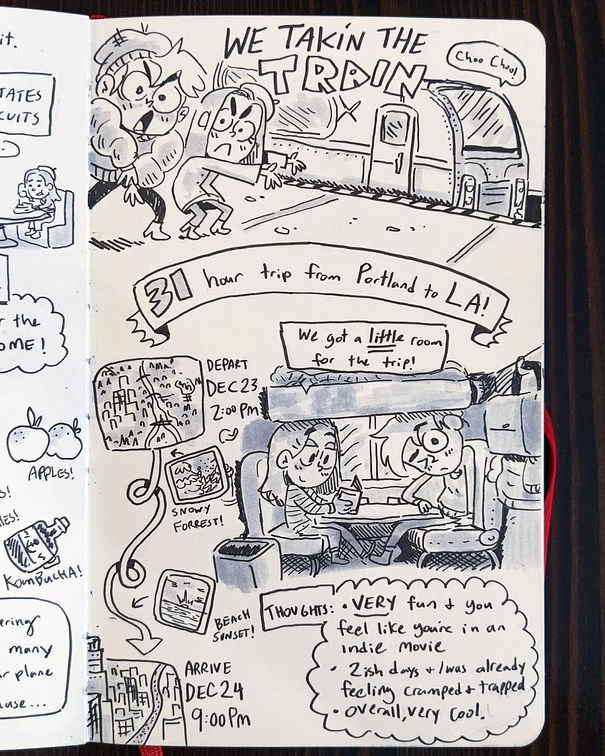 it.
TATES
CUITS
r the
OME!
APPLES!
S!
ES!
KOMBUCHA!
ering
many
r plane
use...
WE TAKIN THE
TRAIN
Choo Choo!
31 hour trip from Portland to LA!
We got a little room
for the trip!
DEPART
DEC 23
2:00 Pm
SNOWY
FORREST!
BEACH
SUNSET!
ARRIVE
DEC 24
9:00 Pm
THOUGHTS:
• VERY fun & you
feel like you're in an
indie movie
• 2ish days & I was already
feeling cramped & trapped
• overall, very cool!